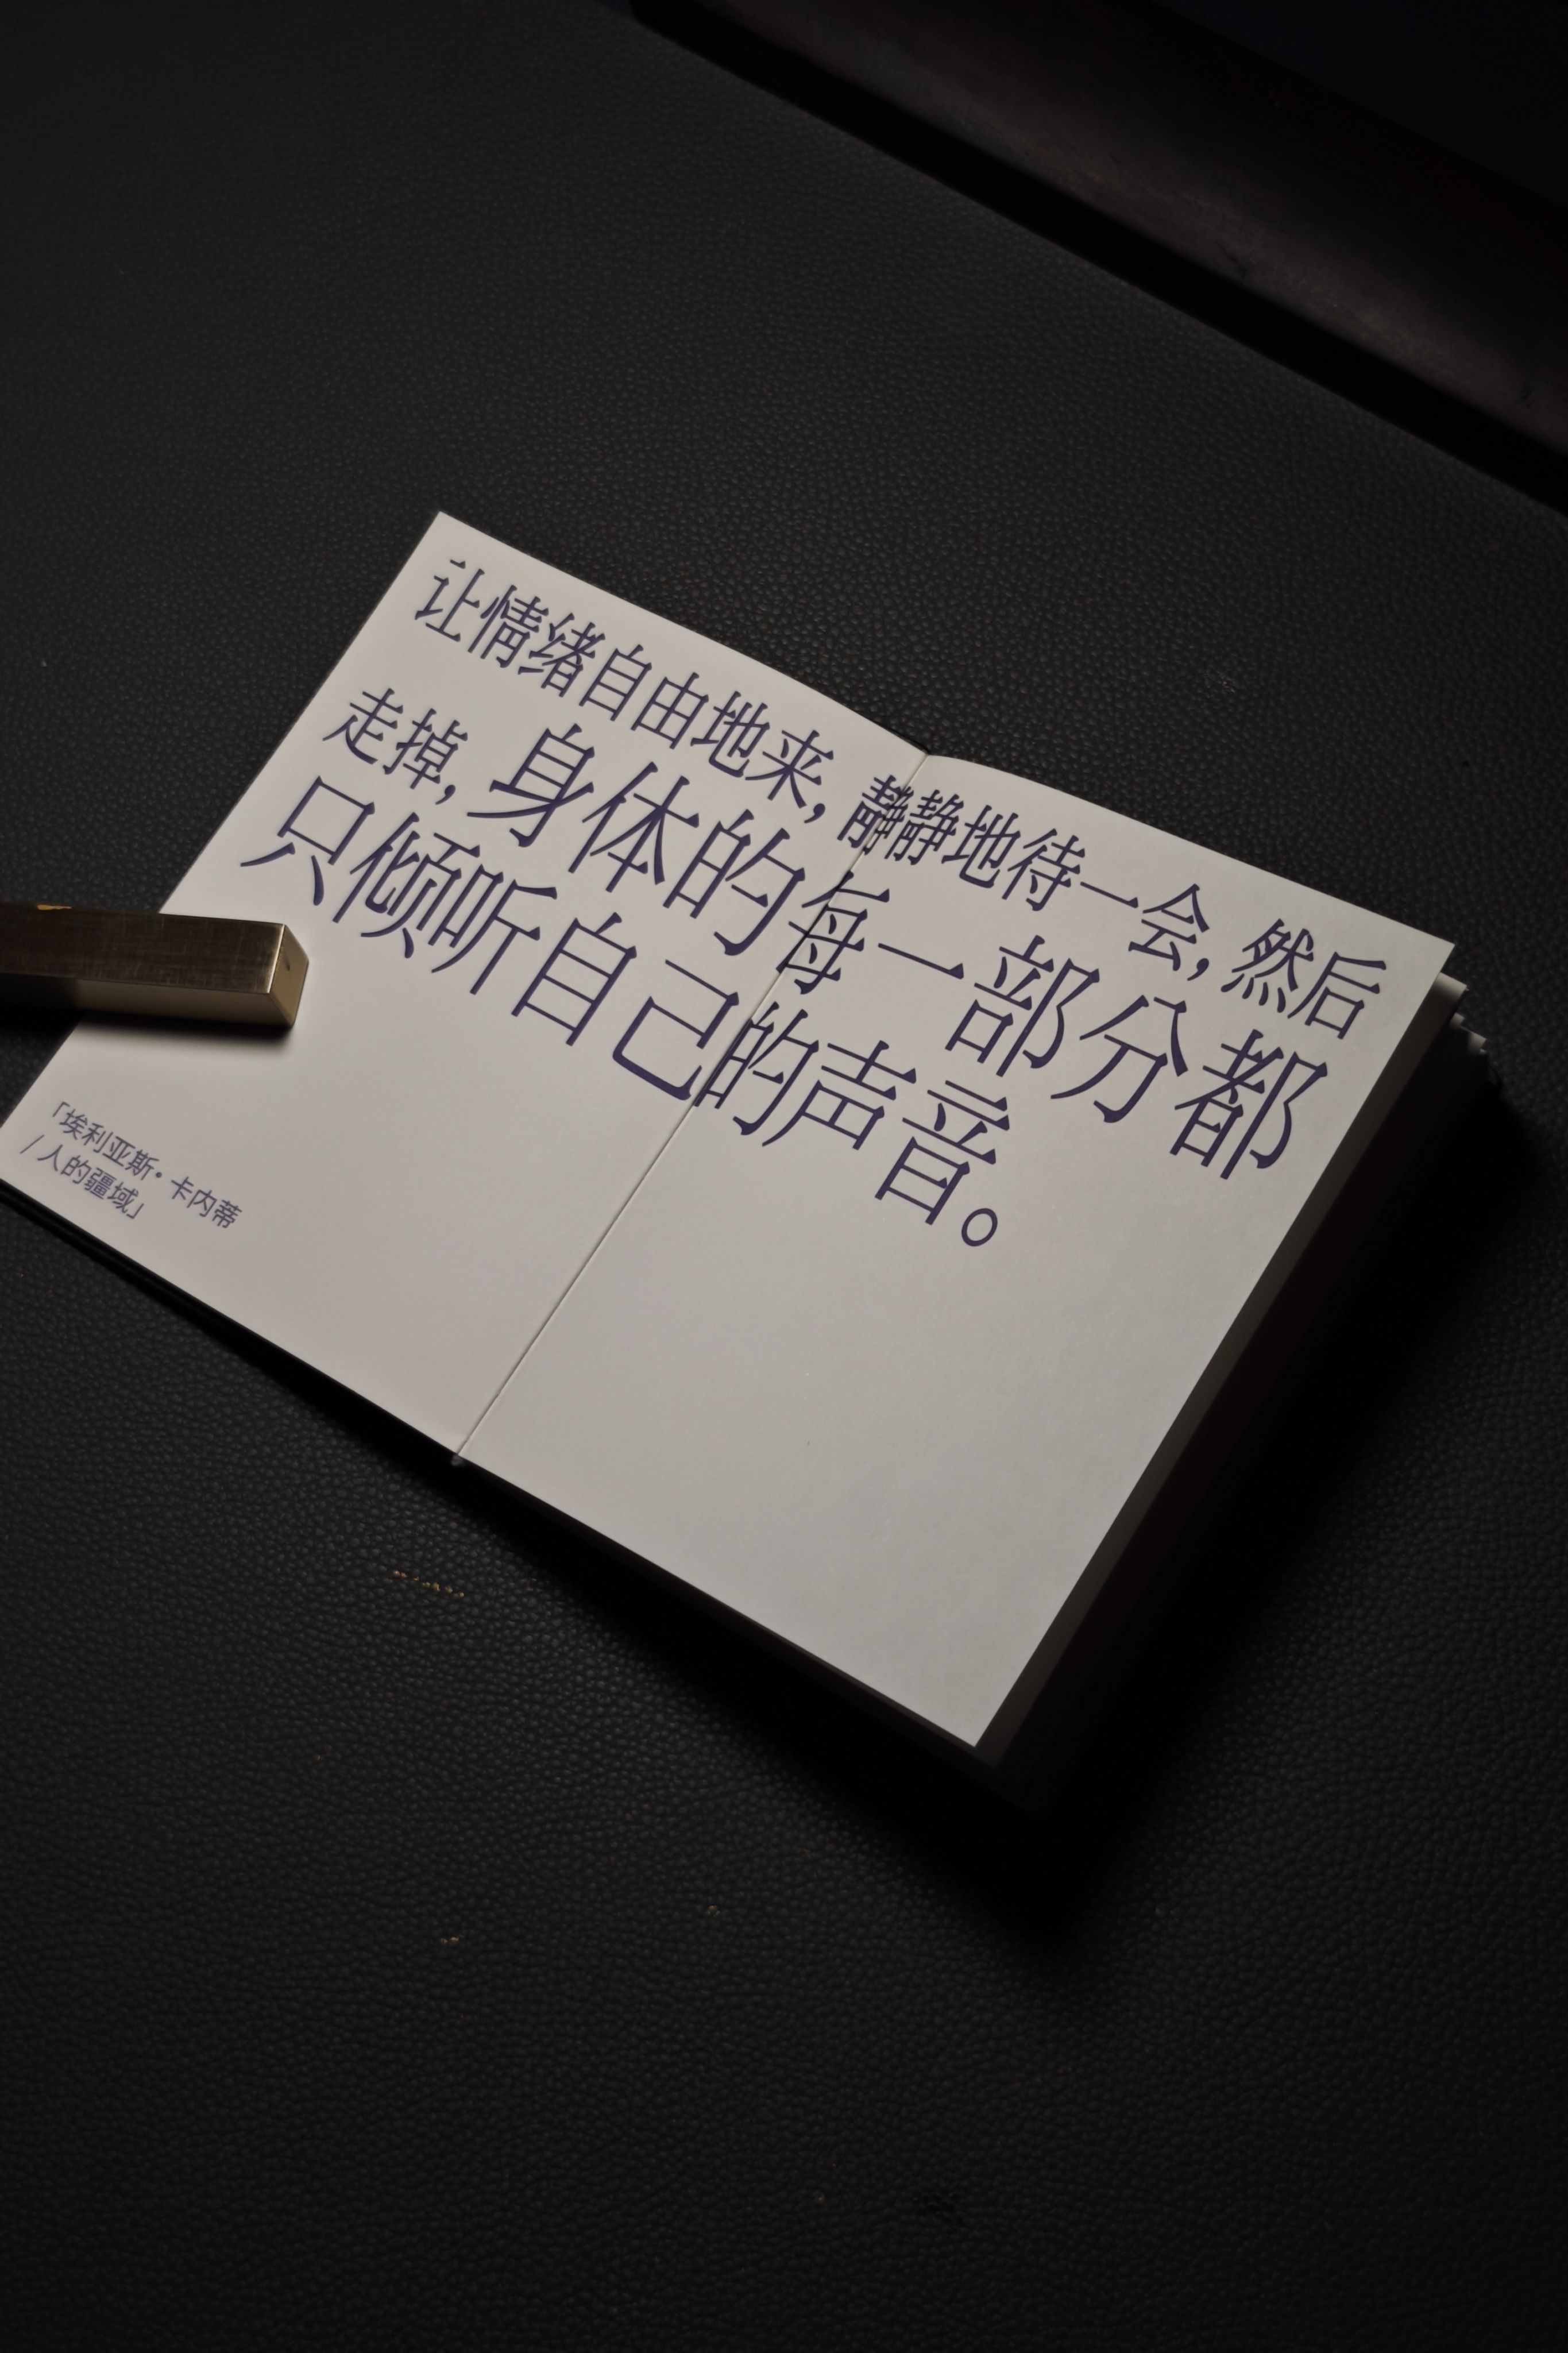 让情绪自由地来，静静地待一会，然后
走掉，身体的每一部分都
只倾听自己的声音。
「埃利亚斯·卡内蒂
/ 人的疆域」